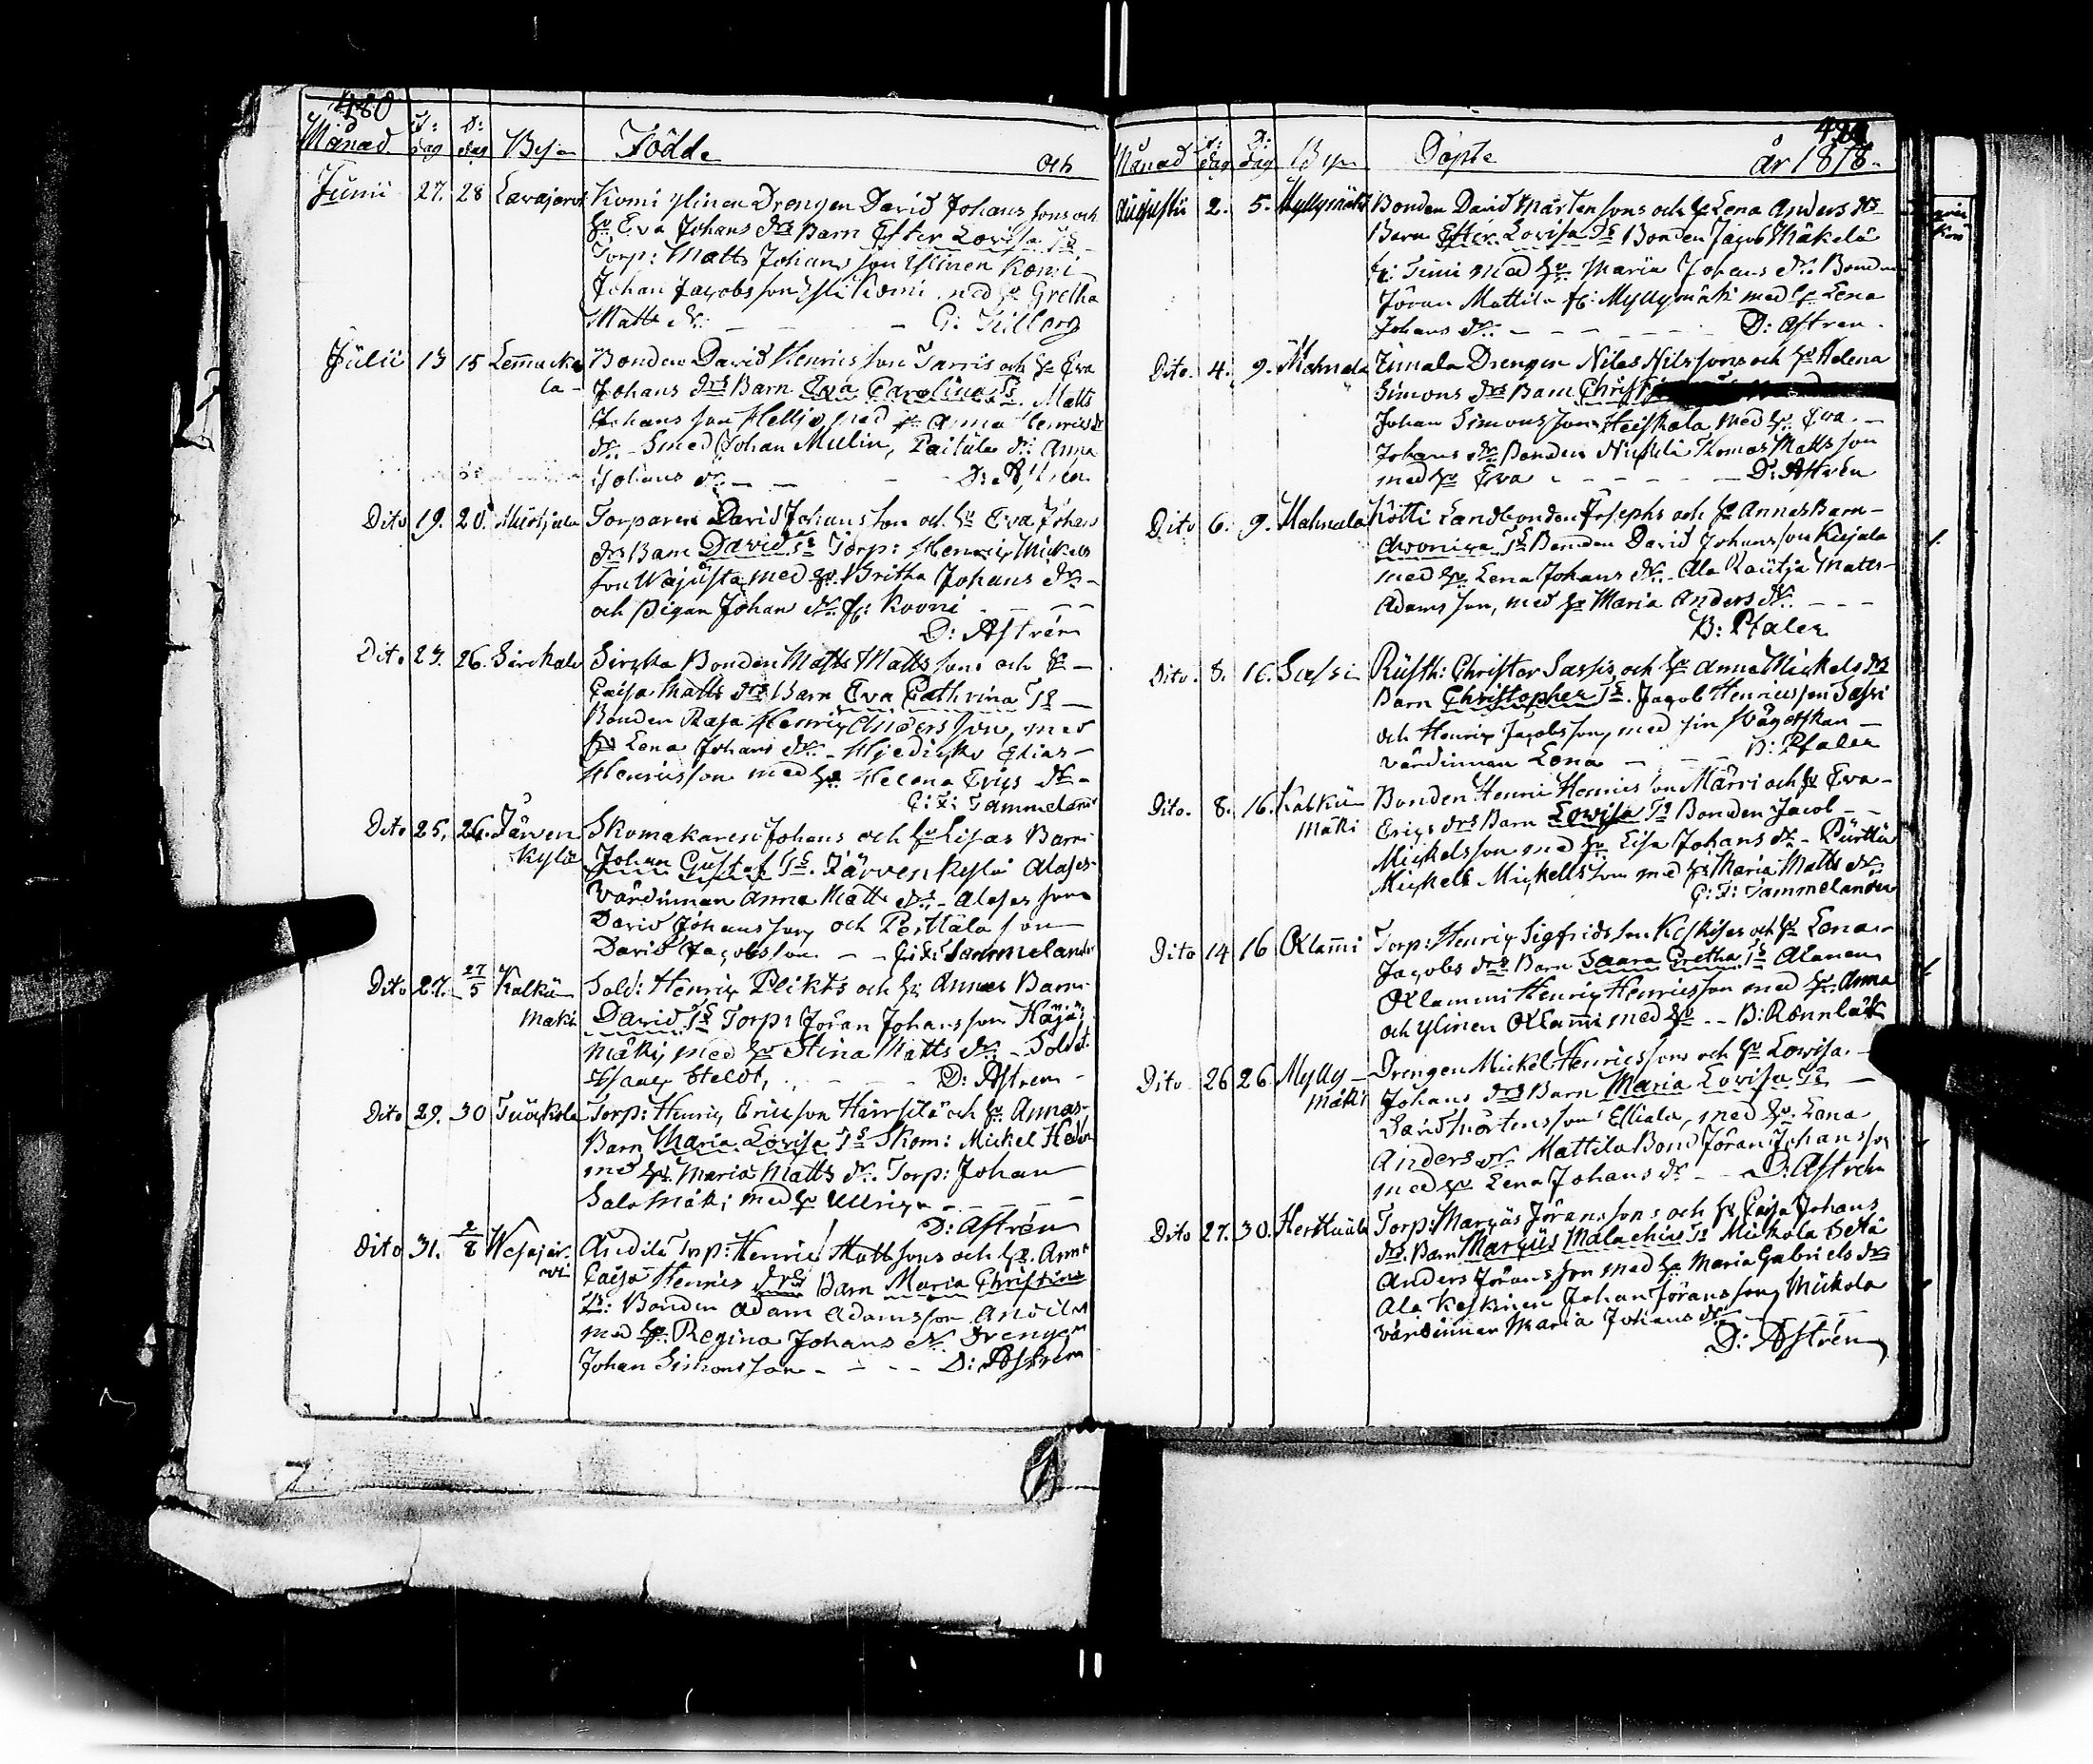 480
Månad F: dag D: dag Byn Födde och
Junii 27. 28 Lavajärvi Komi Ylinen Drengen David Johans sons och
hu Eva Johans drs Barn Ester Lovisa Ts
Torp: Matts Johans son Ylinen Komi
Johan Jacobsson Yli Komi med hu Gretha
Matts dr. — — — G: Killborg
Julii 13 15 Bonden David Henrics son Jarris och hu Eva
la- Johans drs Barn Eva Carolina Ts. Matts
Johans son med hu Anna Henrics
dr. - Smed Johan Mulin, dr: Anna
Johans dr — — — D: Astren
Dito 19. 20. Torparen David Johans son och hu Eva Johans
drs Barn David Ts Torp: Henric Mickels
son Wajusta med hu Britha Johans dr. -
och Pigan Johan dr. fr: Kovni - — —
D: Astrén
Dito 23. 26. Sirckala Sircka Bonden Matts Matts sons och hu —
Caisa Matts drs Barn Eva Cathrina Ts —
Bonden Rasa Henric Anders son, med
hu Lena Johans dr. - Elias -
Henricsson med hu Helena Erics dr -
C: F: Tammelander
Dito 25. 26. Järven Skomakaren Johans och hu Lisas Barn
kylä Johan Gustaf Ts. Järvenkylä Alases
Värdinnan Anna Matts dr. - Alases son
David Johansson och Perttäla son
David Jacobsson — — C: F: Tammelander
Dito 27. 27/5 Kalkun Sold: Henric Plikts och hu Annas Barn
mäki David Ts Torp: Jöran Johansson
mäki, med hu Stina Matts dr. - Sold:
Steldt, — — — D: Astren -
Dito 29. 30 Torp: Henric Ericsson Hirrsilä och hu Annas
Barn Maria Lovisa Ts Skom: Mickel
med hu Maria Matts dr. Torp: Johan
Salomäki med hu Ullrica — — —
D: Astrén
Dito 31. 2/8 Wesajär- Andila Torp: Henric Matts sons och hu Anna
vi Caisa Henrics drs Barn Maria Christina
Ts: Bonden Adam Adamsson Andila
med hu Regina Johans dr. Drengen
Johan Simonsson - — — — D: Astren
Månad F: dag D: dag Byn Döpte år 1818.
Augusti 2. 5. Myllymäki Bonden David Mårten sons och hu Lena Anders drs
Barn Ester Lovisa Ts Bonden Jacob Mäkelä
fr: Tuni med hu Maria Johans dr: Bonden
Jöran Mattila fr: Myllymäki med hu Lena
Johans dr. — — — — D: Astren.
Dito. 4. 9. Mahnala Jumala Drengen Nils Nilssons och hu Helena
Simons drs Barn
Johan Simonsson Heiskala med hu Eva —
Johans dr. Bonden Thomas Matts son
med hu Eva — — — — D: Astrén
Dito 6. 9. Mahnala Kotti Landbonden Josephs och hu Annas Barn —
Ts Bonden David Johansson Kiesala
med hu Lena Johans dr. - Ala Matts-
Adams son, med hu Maria Anders dr. — — —
B: Pfaler
Dito. 8. 16. Sassi Rusth: Christer Sassis och hu Anna Mickels drs
Barn Christopher Ts. Jacob Henricsson Sassi
och Henric Jacobsson, med sin —
värdinnan Lena — — — B: Pfaler
Dito. 8. 16. Kalkun Bonden Henric Henrics son Märri och hu Eva -
mäki Erics drs Barn Lowisa Ts Bonden Jacob — —
Mickelsson med hu Lisa Johans dr. - Purttu
Mickels Mickells son med hu Maria Matts dr.
C: F: Tammelander
Dito 14 16 Ollami Torp: Henric Sigfrids son Keskises och hu Lena
Jacobs drs Barn Saara Gretha Ts Alanen
Ollammi Henric Henricsson med hu Anna
och Ylinen Ollami med hu — — B: Rönnbäck
Dito 26 26 Mylly- Drengen Mickel Henricssons och hu Lowisa. —
mäki Johans drs Barn Maria Lovisa Ts —
David Mårtensson Elliala, med hu Lena
Anders dr. Mattila Bond Jöran Johansson
med hu Lena Johans dr — — D: Astrén
Dito 27. 30. Herttuala Torp: Marcus Jöranssons och hu Caisa Johans
drs Barn Marcus Malachias Ts Mickola
Anders Jöransson med hu Maria Gabriels dr
Ala Keskinen Johan Jöransson, Mickola
värdinnan Maria Johans dr — —
D: Astrén